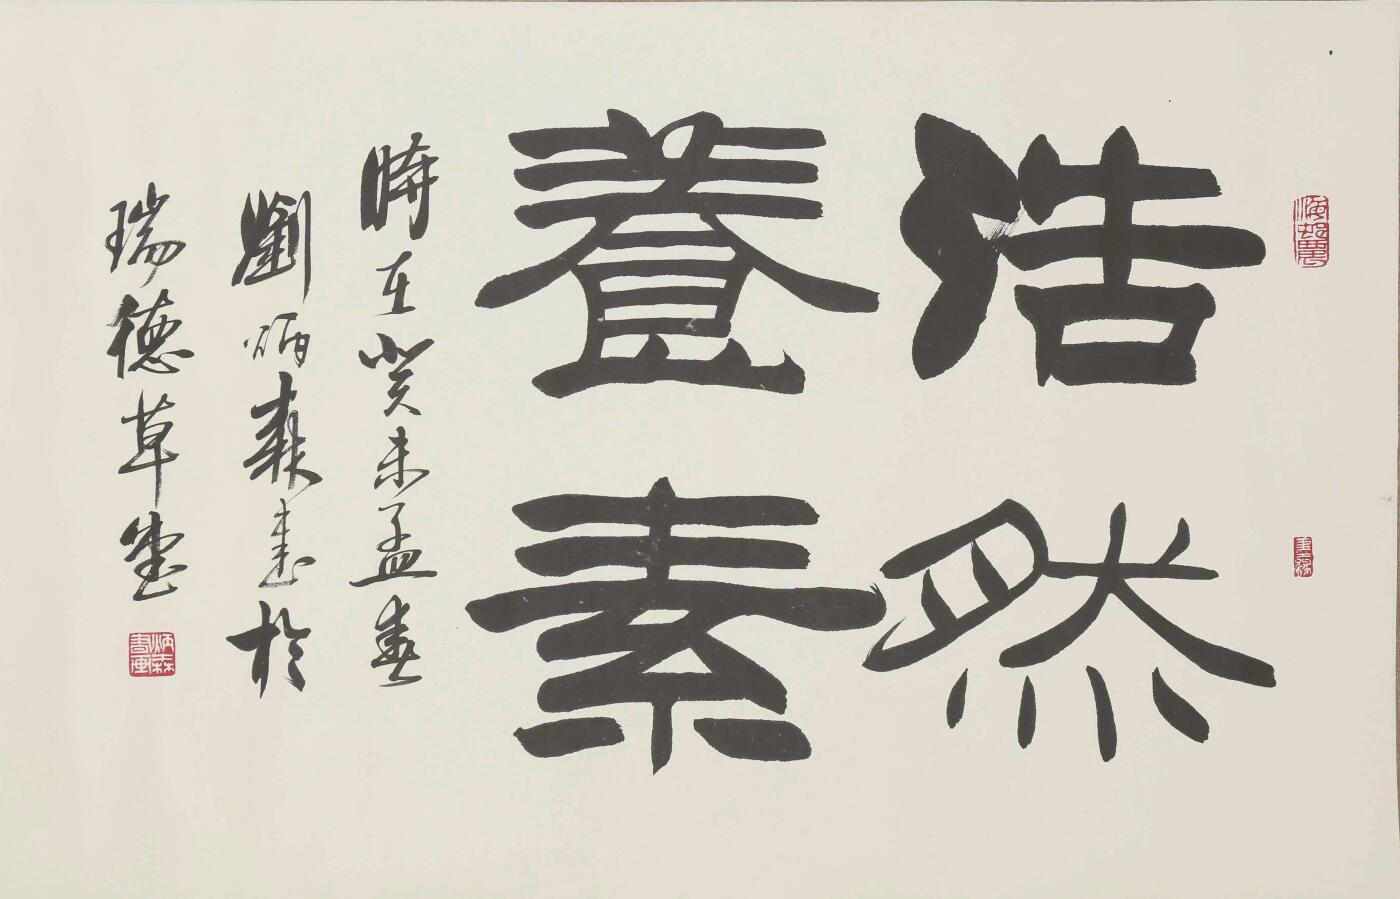 浩然
養素
時在癸未孟春
劉炳森書於
瑞德草堂
炳森書画